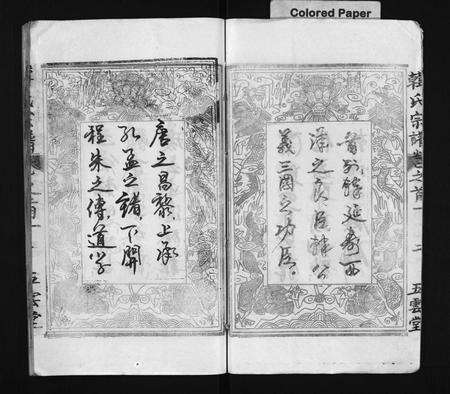 Colored Paper
韓氏宗譜 卷之首一 二 五雲堂
首列韓延壽西
漢之良臣韓公
義三國之功臣
唐之昌黎上承
孔孟之緒下開
程朱之傳道學
五雲堂